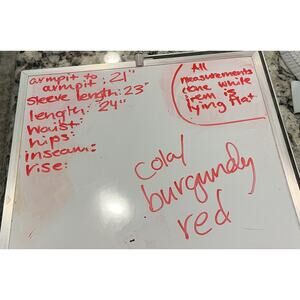 armpit to armpit: 21"
sleeve length: 23"
length: 24"
waist:
hips:
inseam:
rise:
All
measurements
done while
item is
lying flat
color
burgundy
red